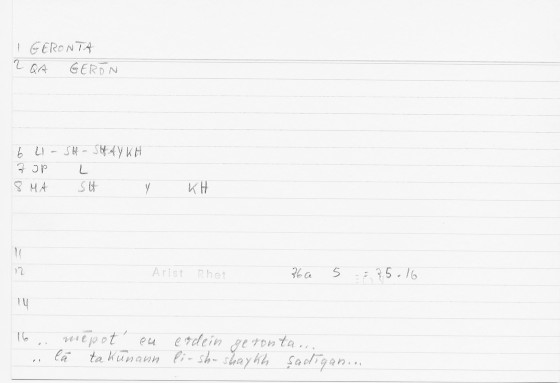 1 GERONTA
2 QA GERŌN
6 LI-SH-SHAYKH
7 JP L
8 MA SH Y KH
11
12 Arist Rhet 76a 5 = 75.16
14
16 .. mēpot' eu erdein geronta...
.. lā takūnann li-sh-shaykh ṣadīqan...